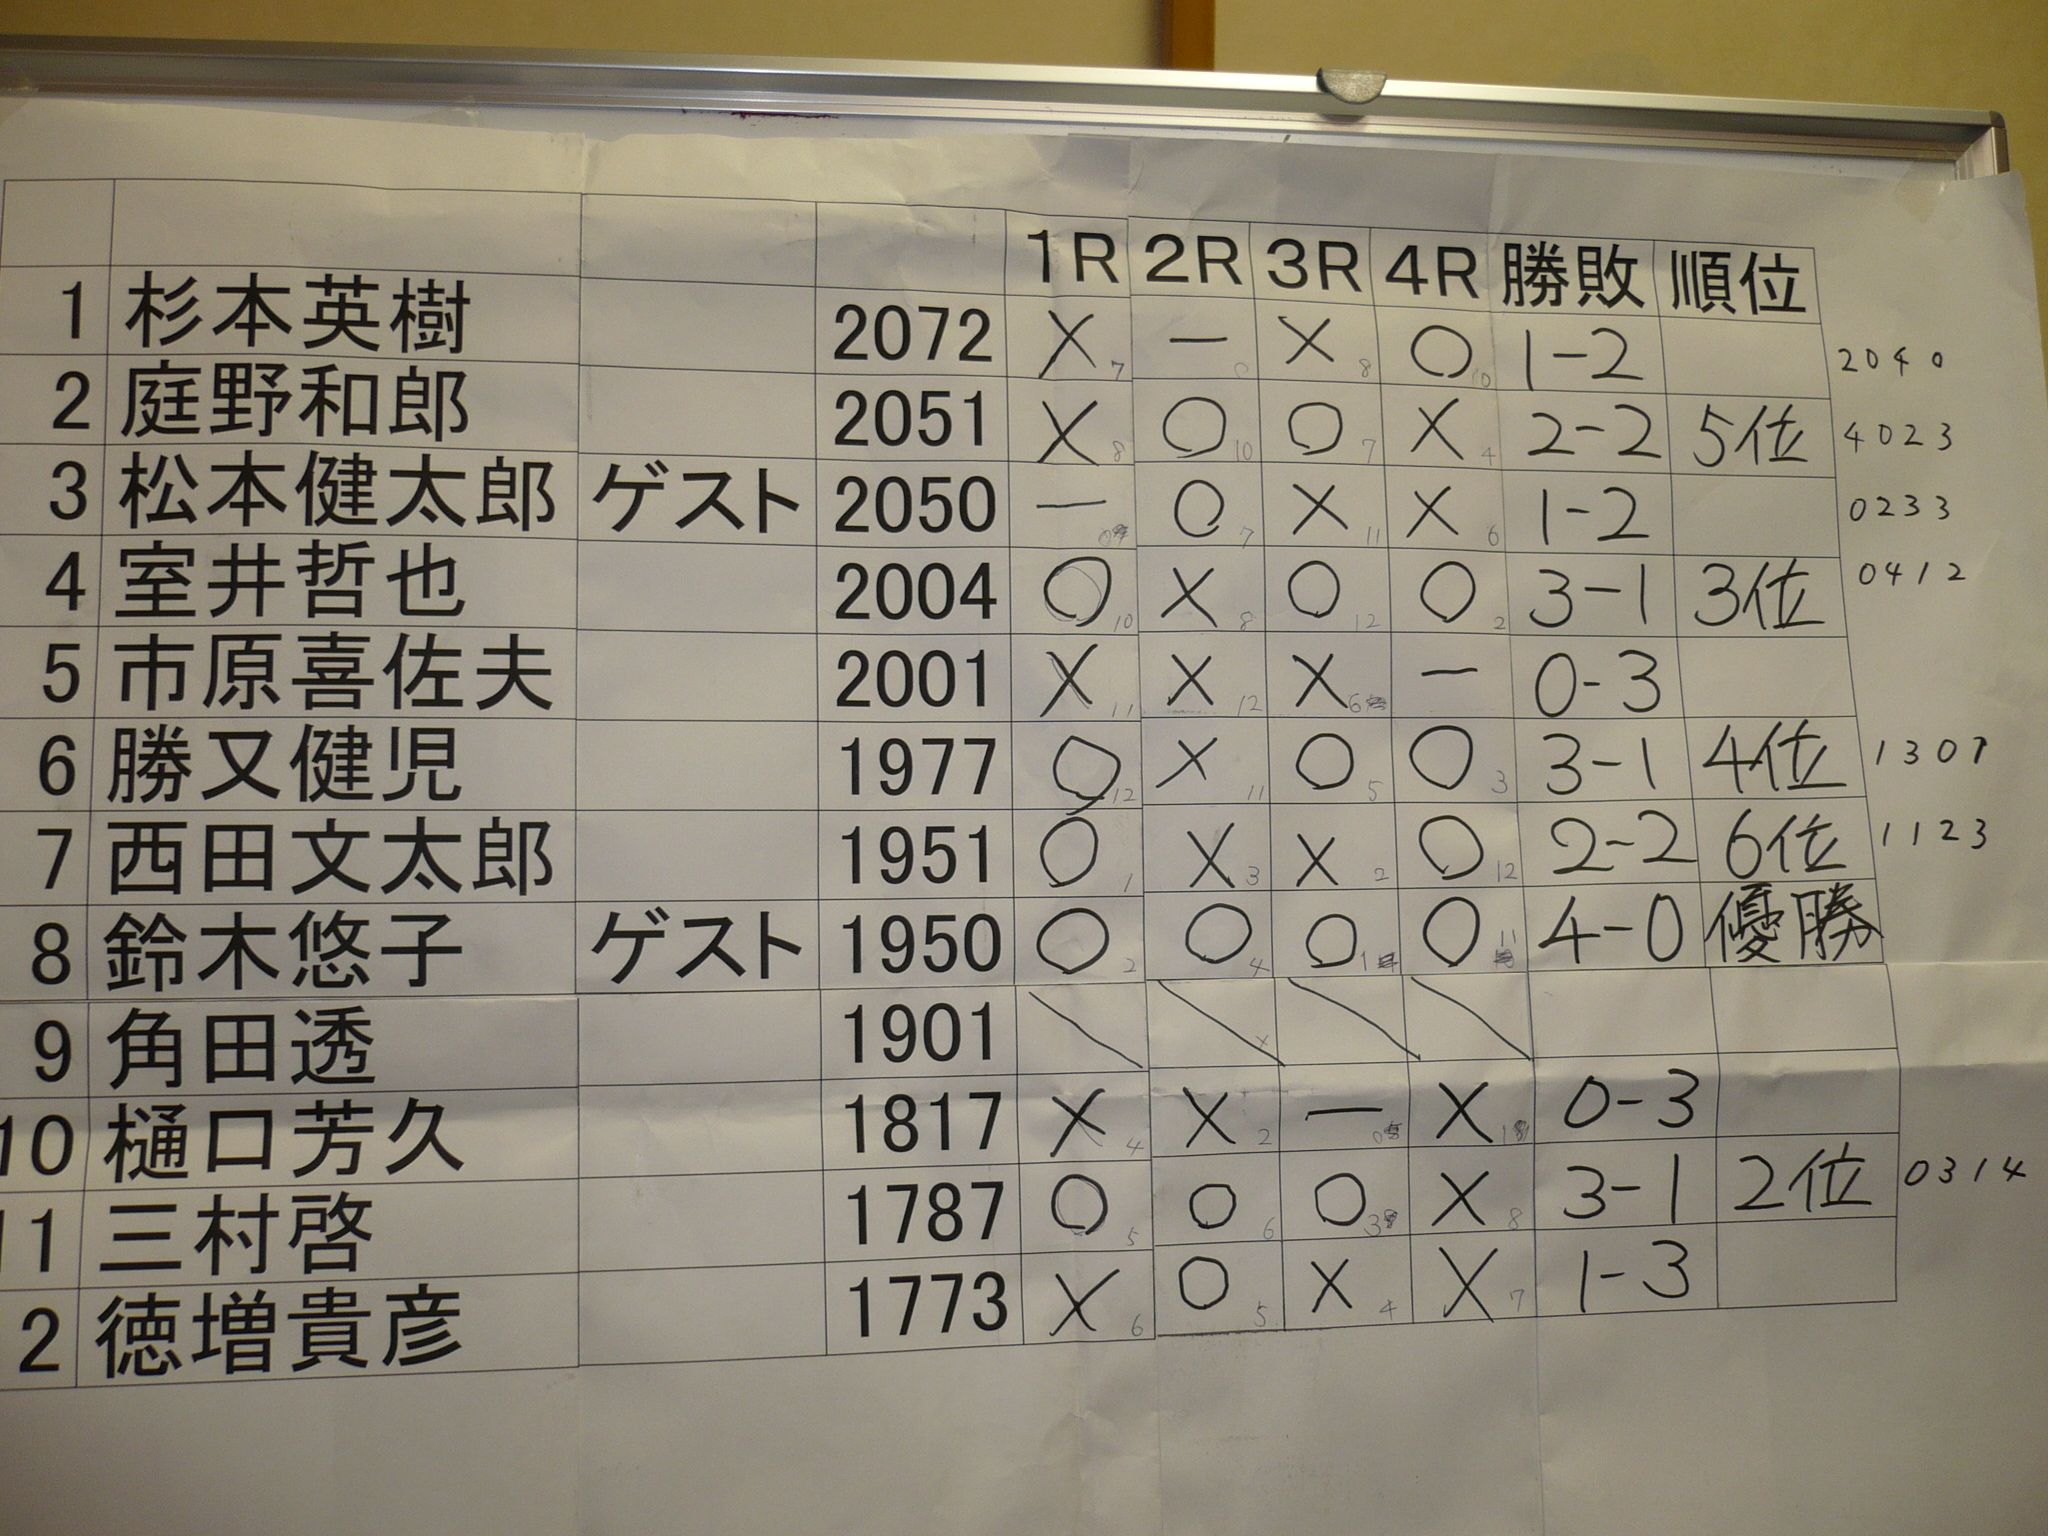 1R 2R 3R 4R 勝敗 順位
1 杉本英樹 2072 X 7 — 0 X 8 ○ 10 1-2 2040
2 庭野和郎 2051 X 8 ○ 10 ○ 7 X 4 2-2 5位 4023
3 松本健太郎 ゲスト 2050 — 0 ○ 7 X 11 X 6 1-2 0233
4 室井哲也 2004 ○ 10 X 8 ○ 12 ○ 2 3-1 3位 0412
5 市原喜佐夫 2001 X 11 X 12 X 6 — 0-3
6 勝又健児 1977 ○ 12 X 11 ○ 5 ○ 3 3-1 4位 1301
7 西田文太郎 1951 ○ 1 X 3 X 2 ○ 12 2-2 6位 1123
8 鈴木悠子 ゲスト 1950 ○ 2 ○ 4 ○ 1 ○ 11 4-0 優勝
9 角田透 1901
10 樋口芳久 1817 X 4 X 2 — 0 X 1 0-3
11 三村啓 1787 ○ 5 ○ 6 ○ 3 X 8 3-1 2位 0314
2 徳増貴彦 1773 X 6 ○ 5 X 4 X 7 1-3